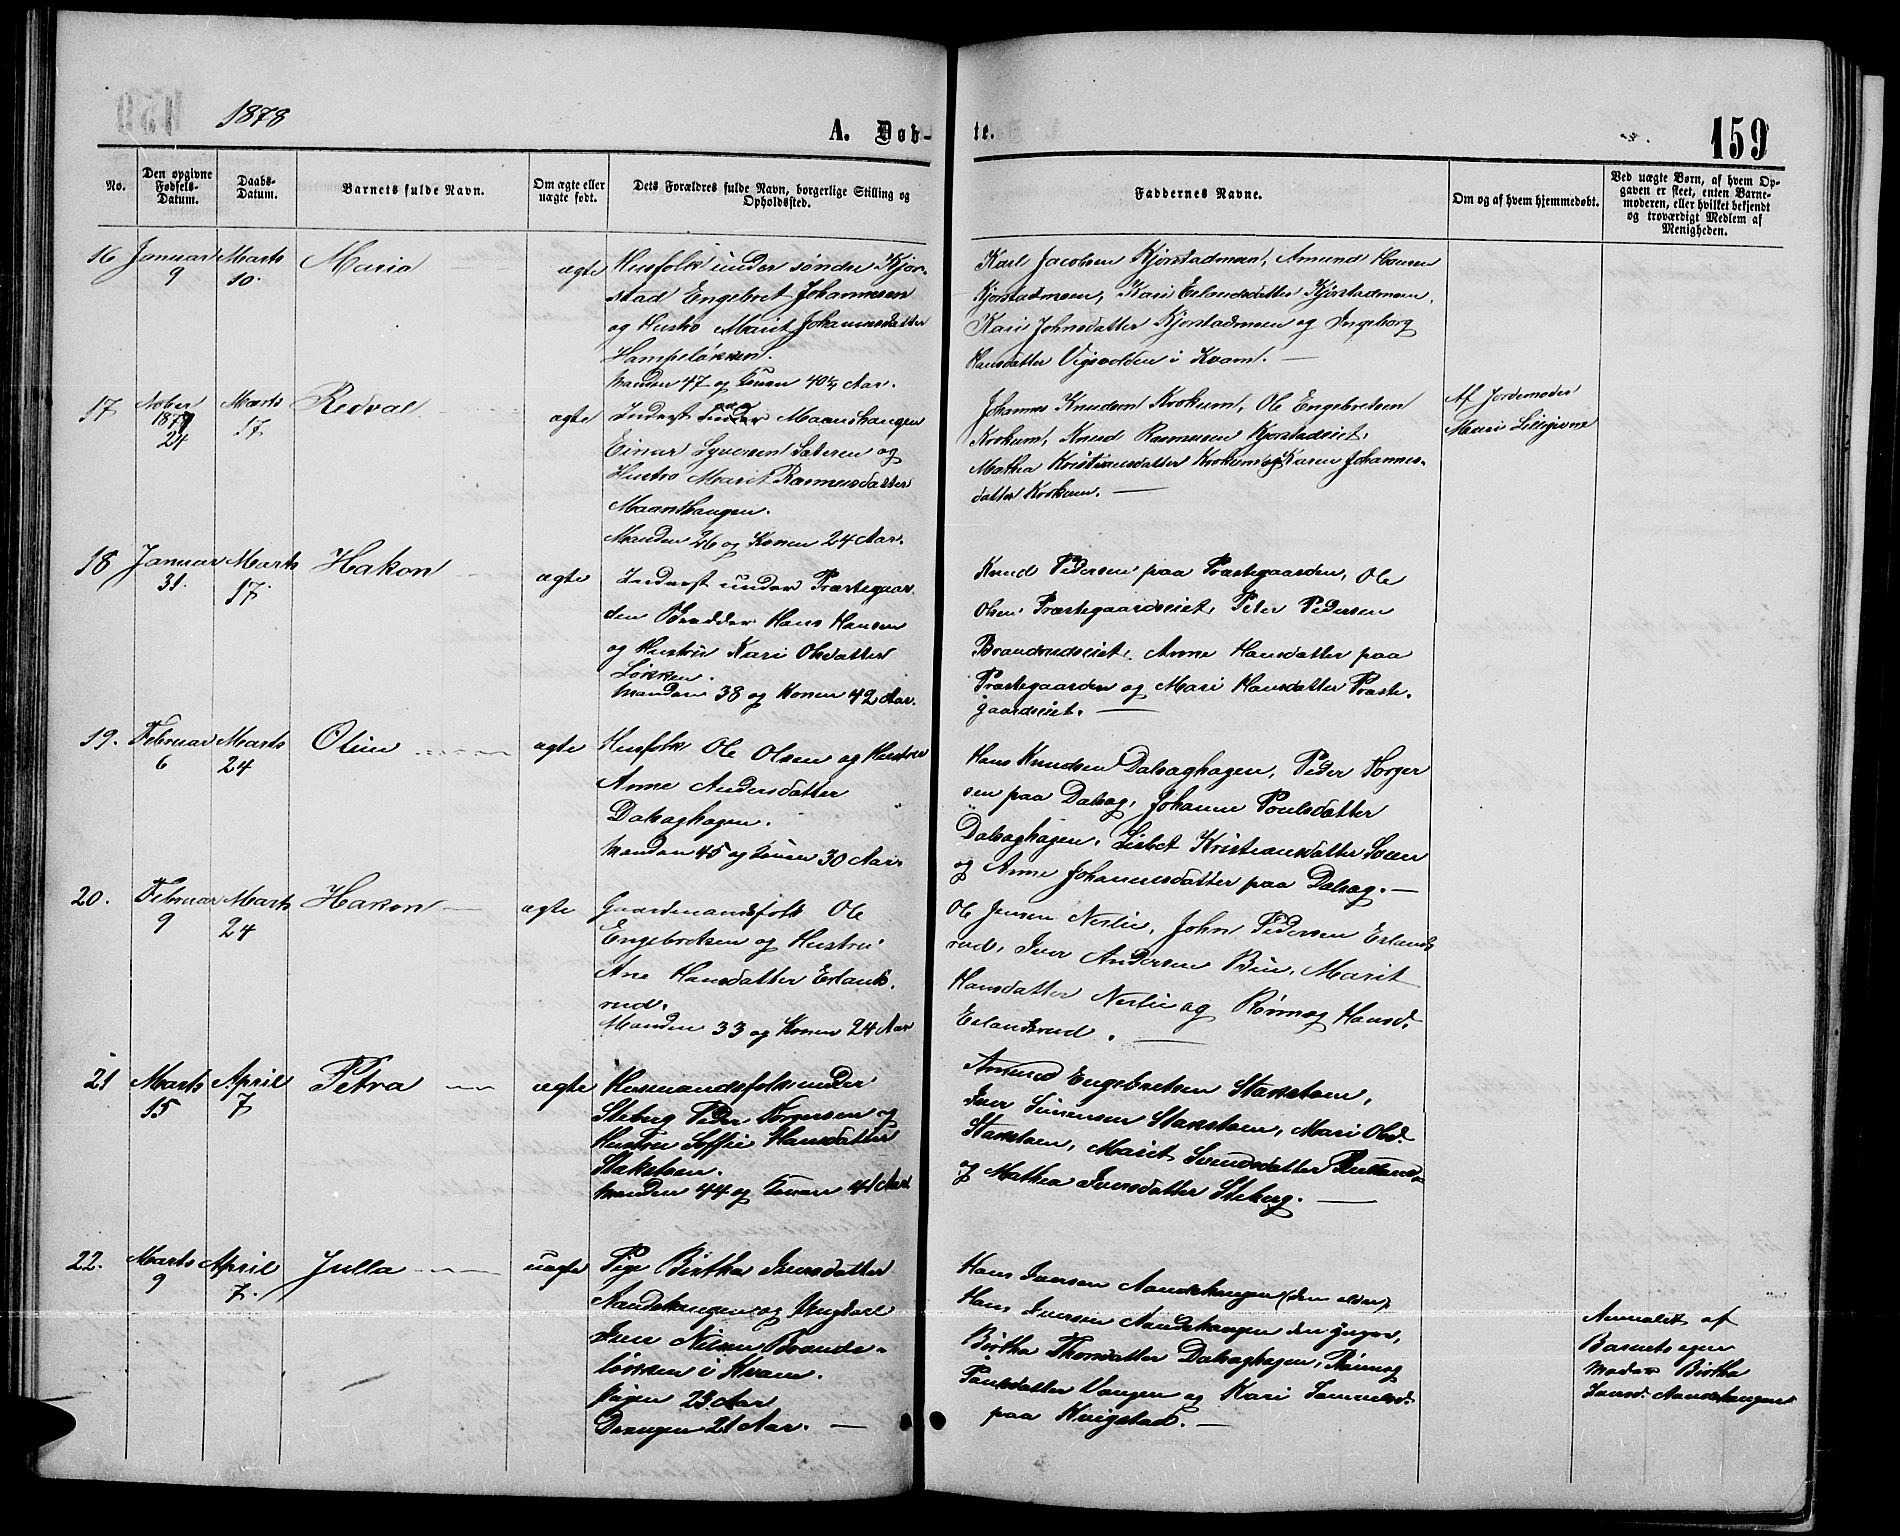 1878
A. Døb-
te.
159
No.
Den opgivne
Fødsels-
Datum.
Daabs-
Datum.
Barnets fulde Navn.
Om ægte eller
uægte født.
Dets Forældres fulde Navn, borgerlige Stilling og
Opholdssted.
Faddernes Navne.
Om og af hvem hjemmedøbt.
Ved uægte Børn, af hvem Op-
gaven er skeet, enten Barne-
moderen, eller hvilket bekjendt
og troværdigt Medlem af
Menigheden.
16
Januar
9
Marts
10.
Maria
ægte
Husfolk under søndre Kjør-
stad Engebret Johannesen
og Hustro Marit Johannesdatter
Hampeløkken.
Manden 47 og Konen 40½ Aar.
Karl Jacobsen Kjørstadmoen, Amund Hansen
Kjørstadmoen, Kari Erlandsdatter Kjørstadmoen,
Kari Johnsdatter Kjørstadmoen og Ingeborg
Hansdatter Vigsvolden i Kvam.
17
Nober
1877
24
Marts
17.
Redval
ægte
Inderst Maanshaugen
Einar Syversen Sateren og
Hustro Marit Rasmusdatter
Maanshaugen.
Manden 26 og Konen 24 Aar.
Johannes Knudsen Krokum, Ole Engebretsen
Krokum, Knud Rasmusen Kjørstadeiet,
Mathea Kristiansdatter Krokum og Karen Johannes-
datter Krokum.
Af Jordemoder
Mari Lillegivne
18
Januar
31.
Marts
17.
Hakon
ægte
Inderst under Præstegaar
den Hans Hansen
og Hustru Kari Olsdatter
Løkken.
Manden 38 og Konen 42 Aar.
Knud Pedersen paa Præstegaarden, Ole
Olsen Præstegaardseiet, Peter Pedersen
Brandrudseiet, Anne Hansdatter paa
Præstegaarden og Mari Hansdatter Præste-
gaardseiet.
19.
Februar
6
Marts
24
Oline
ægte
Husfolk Ole Olsen og Hustru
Anne Andersdatter
Dalsaghagen.
Manden 45 og Konen 30 Aar.
Hans Knudsen Dalsaghagen, Peder Torger
sen paa Dalsag, Johanne Poulsdatter
Dalsaghagen, Lisbet Kristiansdatter Sveen
og Anne Johannesdatter paa Dalsag.
20.
Februar
9
Marts
24
Hakon
ægte
Gaardmandsfolk Ole
Engebretsen og Hustru
Ane Hansdatter Erlands-
rud.
Manden 33 og Konen 24 Aar
Ole Jensen Nerlie, John Pedersen Erlands
rud, Iver Andersen Bue, Marit
Hansdatter Nerlie og Rønnog Hansd.
Erlandsrud.
21
Marts
15
April
7
Petra
ægte
Husmandsfolk under
Steberg Peder Torgersen og
Hustru Soffie Hansdatter
Stakstoen.
Manden 44 og Konen 41 Aar.
Amund Engebretsen Stakstoen,
Iver Simensen Stakstoen, Mari Olsd.
Stakstoen, Marit Svendsdatter
og Mathea Iversdatter Steberg.
22.
Marts
9
April
7.
Julla
uægte
Pige Birtha Iversdatter
Aandehaugen og Ungkarl
Iver Nilsen Brande-
løkken i Kvam.
Pigen 23 Aar
Drengen 21 Aar.
Hans Iversen Aandehaugen (den eldre)
Hans Iversen Aandehaugen den yngre,
Birtha Thorsdatter Dalsaghagen, Rønnog
Poulsdatter Vangen og Kari
paa Kvigstad.
Anmeldt af
Barnets egen
Moder Birtha
Iversd. Aandehaugen